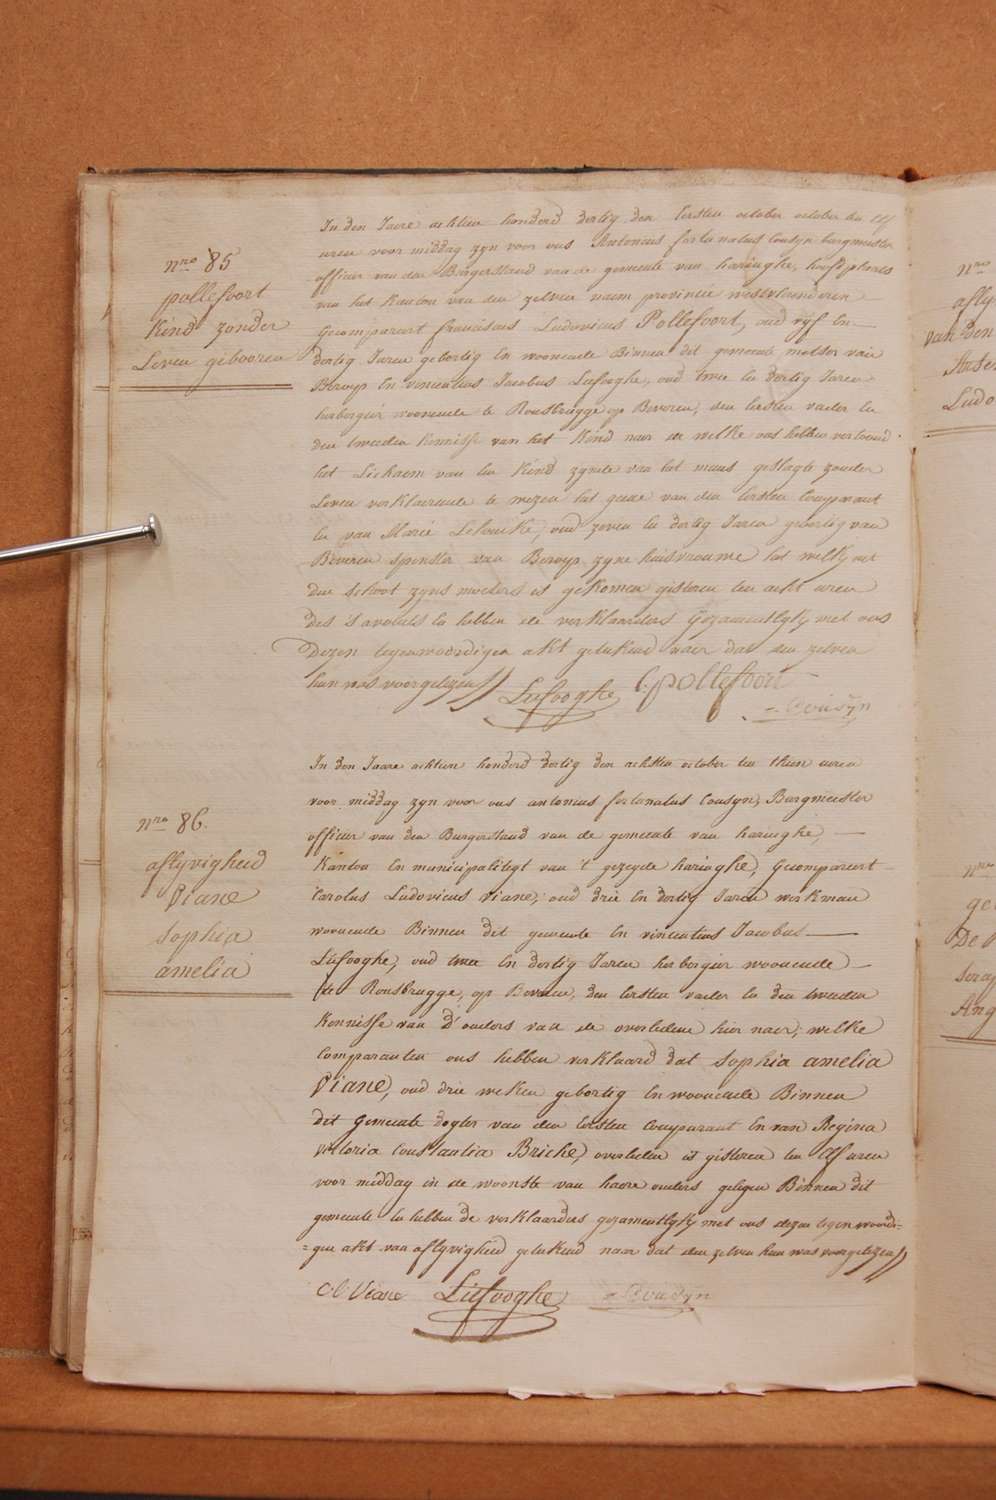 nro 85
pollefoort
kind zonder
Leven gebooren
In den Jaere achtien honderd dertig den Eersten october october ten elf
uren voor middag zyn voor ons Antonius fortunatus Cousyn burgmeester
officier van den Burgerstand van de gemeente van haringhe, hoofdplaets
van het kanton van den zelven naem provintie westvlaenderen
Gecompareert franciscus Ludovicus Pollefoort, oud vyf En
dertig Jaren gebortig En woonende Binnen dit gemeente, metser van
Beroep En vincentius Jacobus Liefooghe, oud twee En dertig Jaren
herbergier woonende te Rousbrugge op Beveren, den Eersten vader En
den tweeden kennisse van het kind naer de welke ons hebben vertoond
het Lichaem van Een kind zynde van het mans geslagte zonder
Leven verklaerende te wezen het gene van den Eersten Comparant
En van Marie, oud zeven En dertig Jaren gebortig van
Beveren spinster van Beroep zyne huisvrouwe het welk uit
den schoot zyns moeders is gekomen gisteren ten acht uren
des s'avonds En hebben de verklaarders Gezamentlyk met ons
Dezen tegenwoordigen akt getekend naer dat den zelven
hun was voorgelezen//
Liefooghe C: pollefoort
Cousyn
nro 86.
aflyvigheid
Viane
sophia
amelia
In den Jaare achtien honderd dertig den achsten october ten thien uren
voor middag zyn voor ons antonius fortunatus Cousyn, Burgmeester
officier van den Burgerstand van de gemeente van haringhe,
kanton En municipaliteyt van 't gezeyde haringhe, Gecompareert
Carolus Ludovicus Viane, oud drie En dertig Jaren werkman
woonende Binnen dit gemeente En vincentius Jacobus
Liefooghe, oud twee En dertig Jaren herbergier woonende
te Rousbrugge, op Beveren, den Eersten vader En den tweeden
kennisse van d'ouders van de overledene hier naer, welke
Comparanten ons hebben verklaard dat sophia amelia
Viane, oud drie weken gebortig En woonende Binnen
dit Gemeente dogter van den Eersten Comparant En van Regina
victoria Constantia Briche, overleden is gisteren ten elf uren
voor middag in de woonste van haere ouders gelegen Binnen dit
gemeente En hebben de verklaarders gezamentlyk met ons dezen tegenwoordi=
=gen akt van aflyvigheid getekend naar dat den zelven hun was voorgelezen//
C: L: Viane Liefooghe Cousyn
nro
aflyv
van den
Ludo
nro
ge
De
Ang